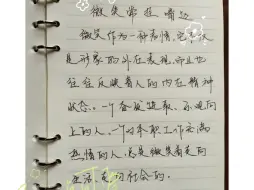 微笑常挂嘴边
微笑作为一种表情，它不仅
是形象的外在表现，而且也
往往反映着人的内在精神
状态。一个奋发进取、乐观向
上的人，一个对本职工作充满
热情的人，总是微笑着走向
生活，走向社会的。